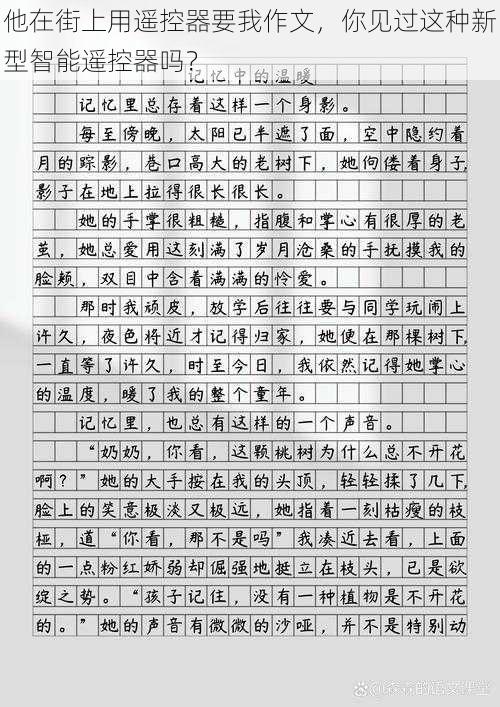 他在街上用遥控器要我作文，你见过这种新
型智能遥控器吗？
记忆中的温暖
记忆里总存着这样一个身影。
每至傍晚，太阳已半遮了面，空中隐约着
月的踪影，巷口高大的老树下，她佝偻着身子，
影子在地上拉得很长很长。
她的手掌很粗糙，指腹和掌心有很厚的老
茧，她总爱用这刻满了岁月沧桑的手抚摸我的
脸颊，双目中含着满满的怜爱。
那时我顽皮，放学后往往要与同学玩闹上
许久，夜色将近才记得归家，她便在那棵树下，
一直等了许久，时至今日，我依然记得她掌心
的温度，暖了我的整个童年。
记忆里，也总有这样的一个声音。
“奶奶，你看，这颗桃树为什么总不开花
啊？”她的大手按在我的头顶，轻轻揉了几下，
脸上的笑意极淡又极远，她指着一刻枯瘦的枝
桠，道“你看，那不是吗”我凑近去看，上面
的一点粉红娇弱却倔强地挺立在枝头，已是欲
绽之势。“孩子记住，没有一种植物是不开花
的。”她的声音有微微的沙哑，并不是特别动